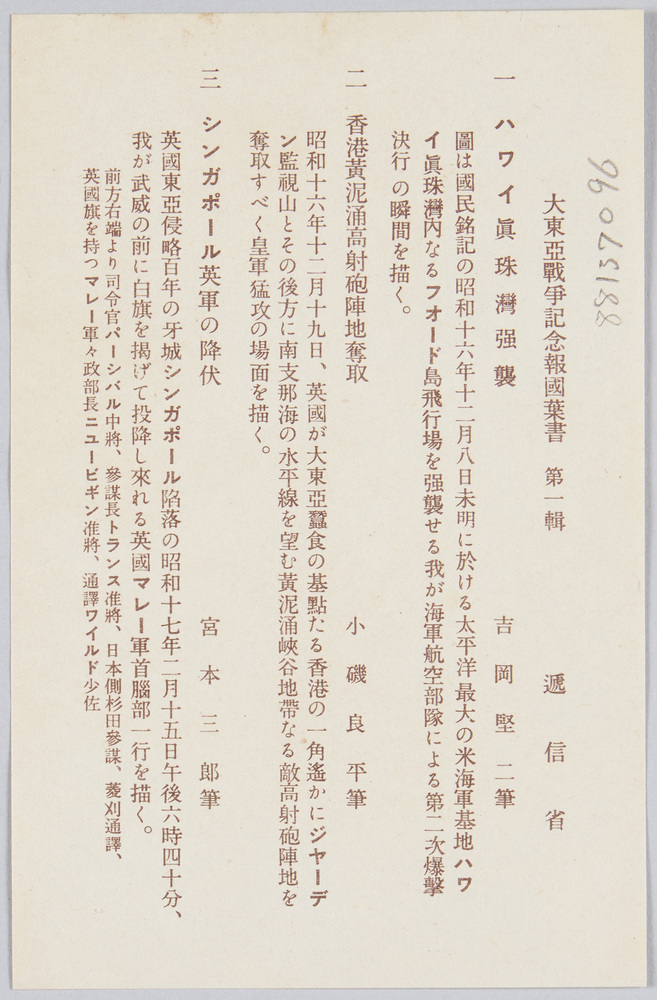 88157096
大東亞戰爭記念報國葉書 第一輯 遞信省
一 ハワイ眞珠灣强襲 吉岡堅二筆
圖は國民銘記の昭和十六年十二月八日未明に於ける太平洋最大の米海軍基地ハワ
イ眞珠灣內なるフオード島飛行場を强襲せる我が海軍航空部隊による第二次爆擊
決行の瞬間を描く。
二 香港黃泥涌高射砲陣地奪取 小磯良平筆
昭和十六年十二月十九日、英國が大東亞蠶食の基點たる香港の一角遙かにジヤーデ
ン監視山とその後方に南支那海の水平線を望む黃泥涌峽谷地帶なる敵高射砲陣地を
奪取すべく皇軍猛攻の場面を描く。
三 シンガポール英軍の降伏 宮本三郞筆
英國東亞侵略百年の牙城シンガポール陷落の昭和十七年二月十五日午後六時四十分、
我が武威の前に白旗を揭げて投降し來れる英國マレー軍首腦部一行を描く。
前方右端より司令官パーシバル中將、參謀長トランス准將、日本側杉田參謀、菱刈通譯、
英國旗を持つマレー軍々政部長ニユービギン准將、通譯ワイルド少佐